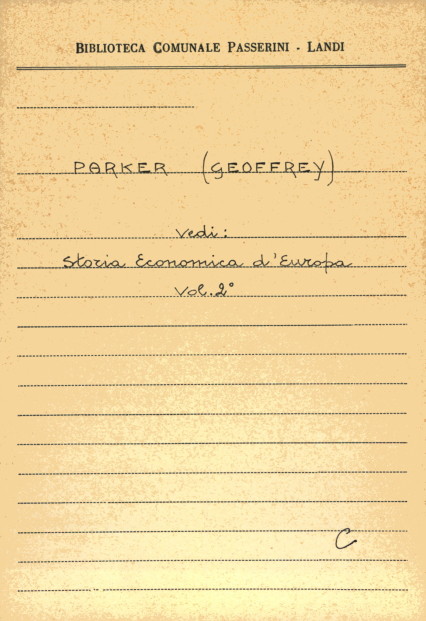 BIBLIOTECA COMUNALE PASSERINI - LANDI
PARKER (GEOFFREY)
Vedi:
Storia Economica d'Europa
Vol. 2°
C